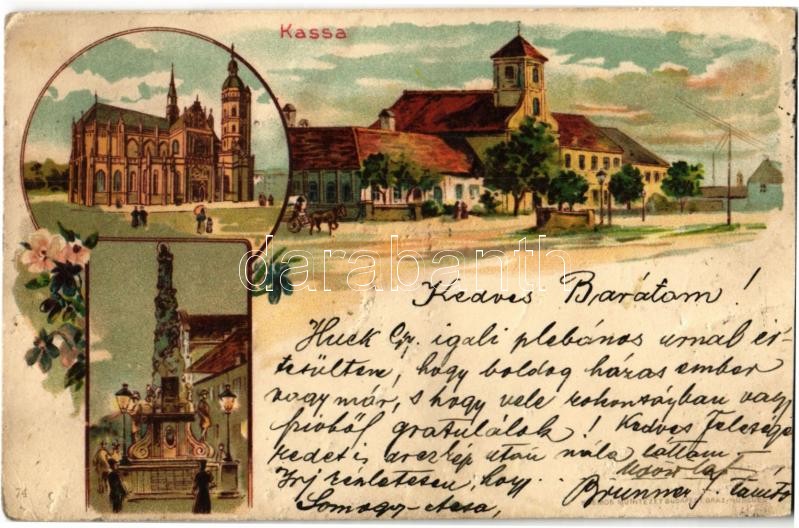 Kassa
darabanth
Kedves Barátom!
Huck Gy. igali plebános urnal ér-
tesültem, hogy boldog házas ember
vagy már, s hogy vele rokonságban vagy
szivből gratulálok! Kedves Felesége
kedet is arczkép után nála láttam
Irj részletesen, hogy
Brunner J. tanító
Somogy-Acsa,
74